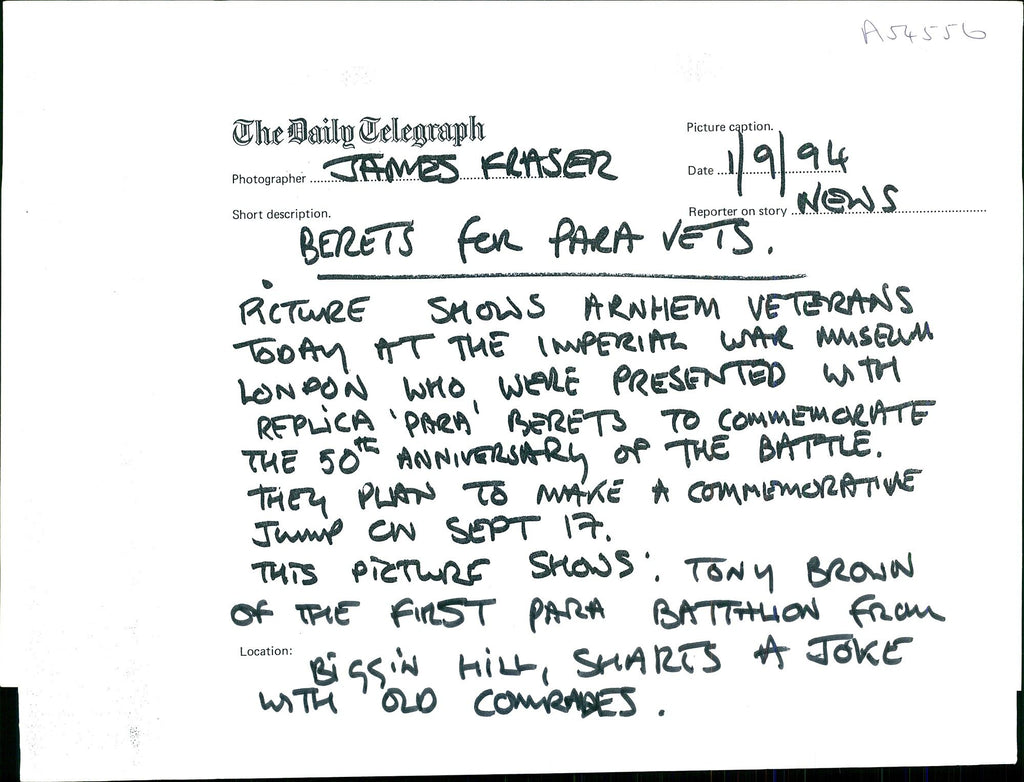 A54556
The Daily Telegraph
Picture caption.
Photographer ..... JAMES FRASER
Date ... 1/9/94
Short description.
Reporter on story ... NEWS
BERETS FOR PARA VETS.
PICTURE SHOWS ARNHEM VETERANS
TODAY AT THE IMPERIAL WAR MUSEUM
LONDON WHO WERE PRESENTED WITH
REPLICA 'PARA' BERETS TO COMMEMORATE
THE 50TH ANNIVERSARY OF THE BATTLE.
THEY PLAN TO MAKE A COMMEMORATIVE
JUMP ON SEPT 17.
THIS PICTURE SHOWS: TONY BROWN
OF THE FIRST PARA BATTALION FROM
Location:
BIGGIN HILL, SHARES A JOKE
WITH OLD COMRADES.